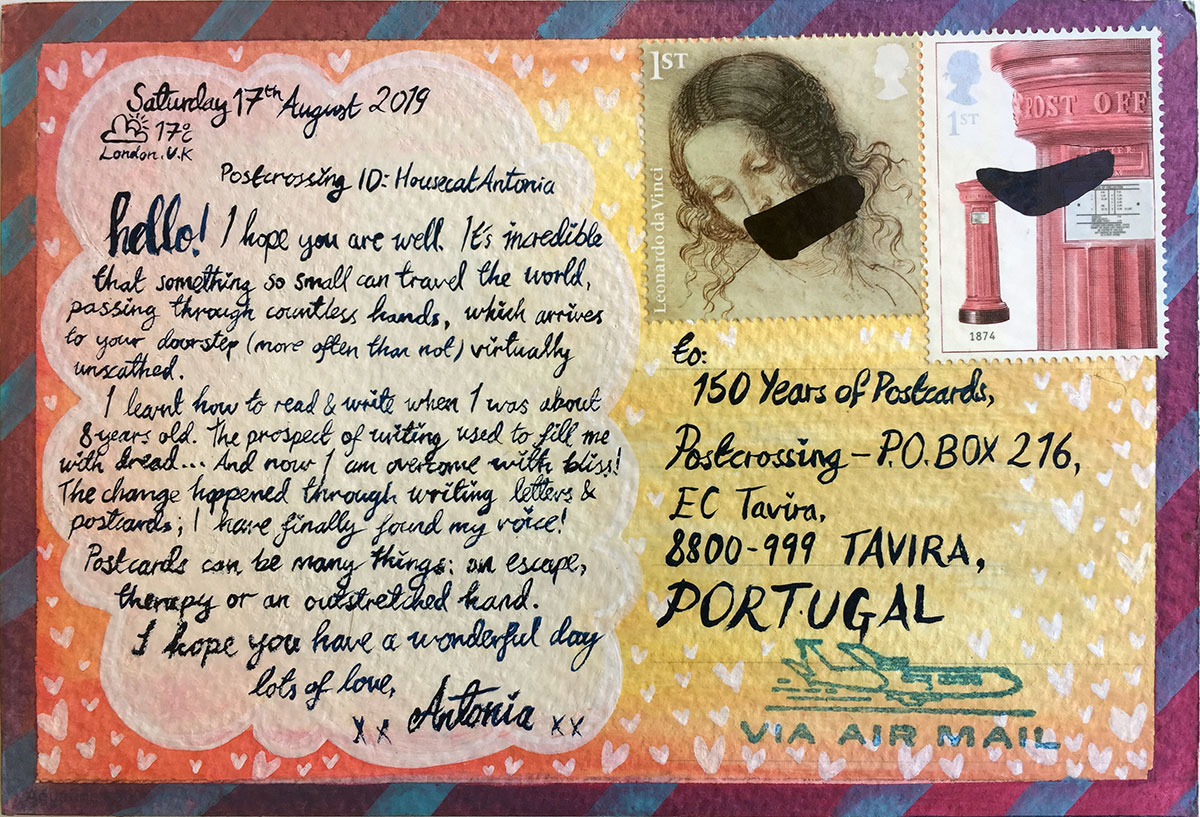 Saturday 17th August 2019
17°C
London. U.K
Postcrossing ID: HousecatAntonia
hello! I hope you are well. It's incredible
that something so small can travel the world,
passing through countless hands, which arrives
to your doorstep (more often than not) virtually
unscathed.
I learnt how to read & write when I was about
8 years old. The prospect of writing used to fill me
with dread... And now I am overcome with bliss!
The change happened through writing letters &
postcards; I have finally found my voice!
Postcards can be many things: an escape,
therapy or an outstretched hand.
I hope you have a wonderful day
lots of love,
xx Antonia xx
1ST
Leonardo da Vinci
1ST
POST OFF
LETTER
1874
to:
150 Years of Postcards,
Postcrossing - P.O. BOX 216,
EC Tavira,
8800-999 TAVIRA,
PORTUGAL
VIA AIR MAIL